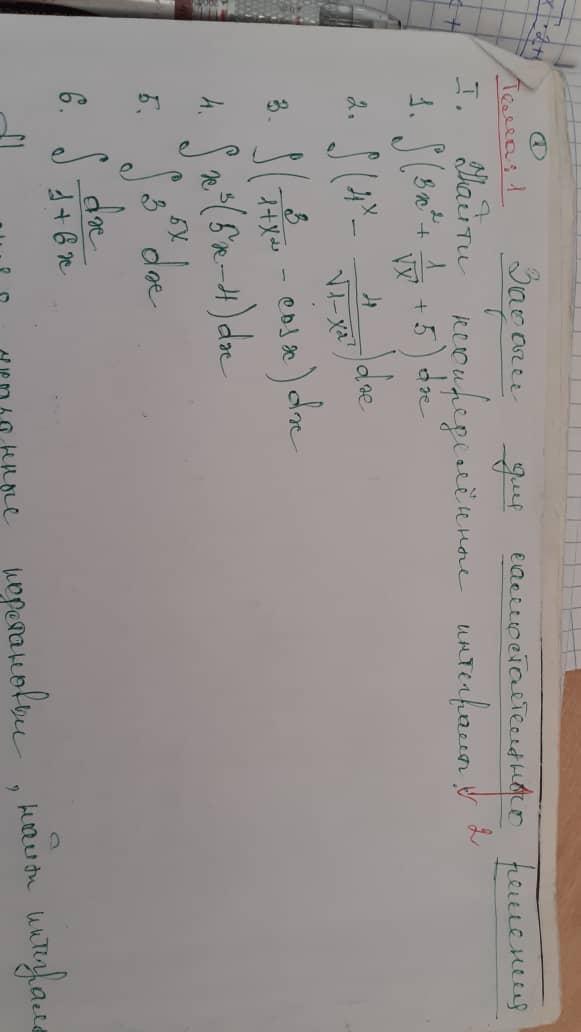 ①
Тема: 1 Задачи для самостоятельного решения
I. Найти неопределённые интегралы. √ 2
1. ∫(3x² + 1/√x + 5)dx
2. ∫(4ˣ − 4/√(1−x²))dx
3. ∫(3/(1+x²) − cosx)dx
4. ∫x³(5x−4)dx
5. ∫3⁵ˣ dx
6. ∫dx/(1+6x)
подстановки, найти интегралы